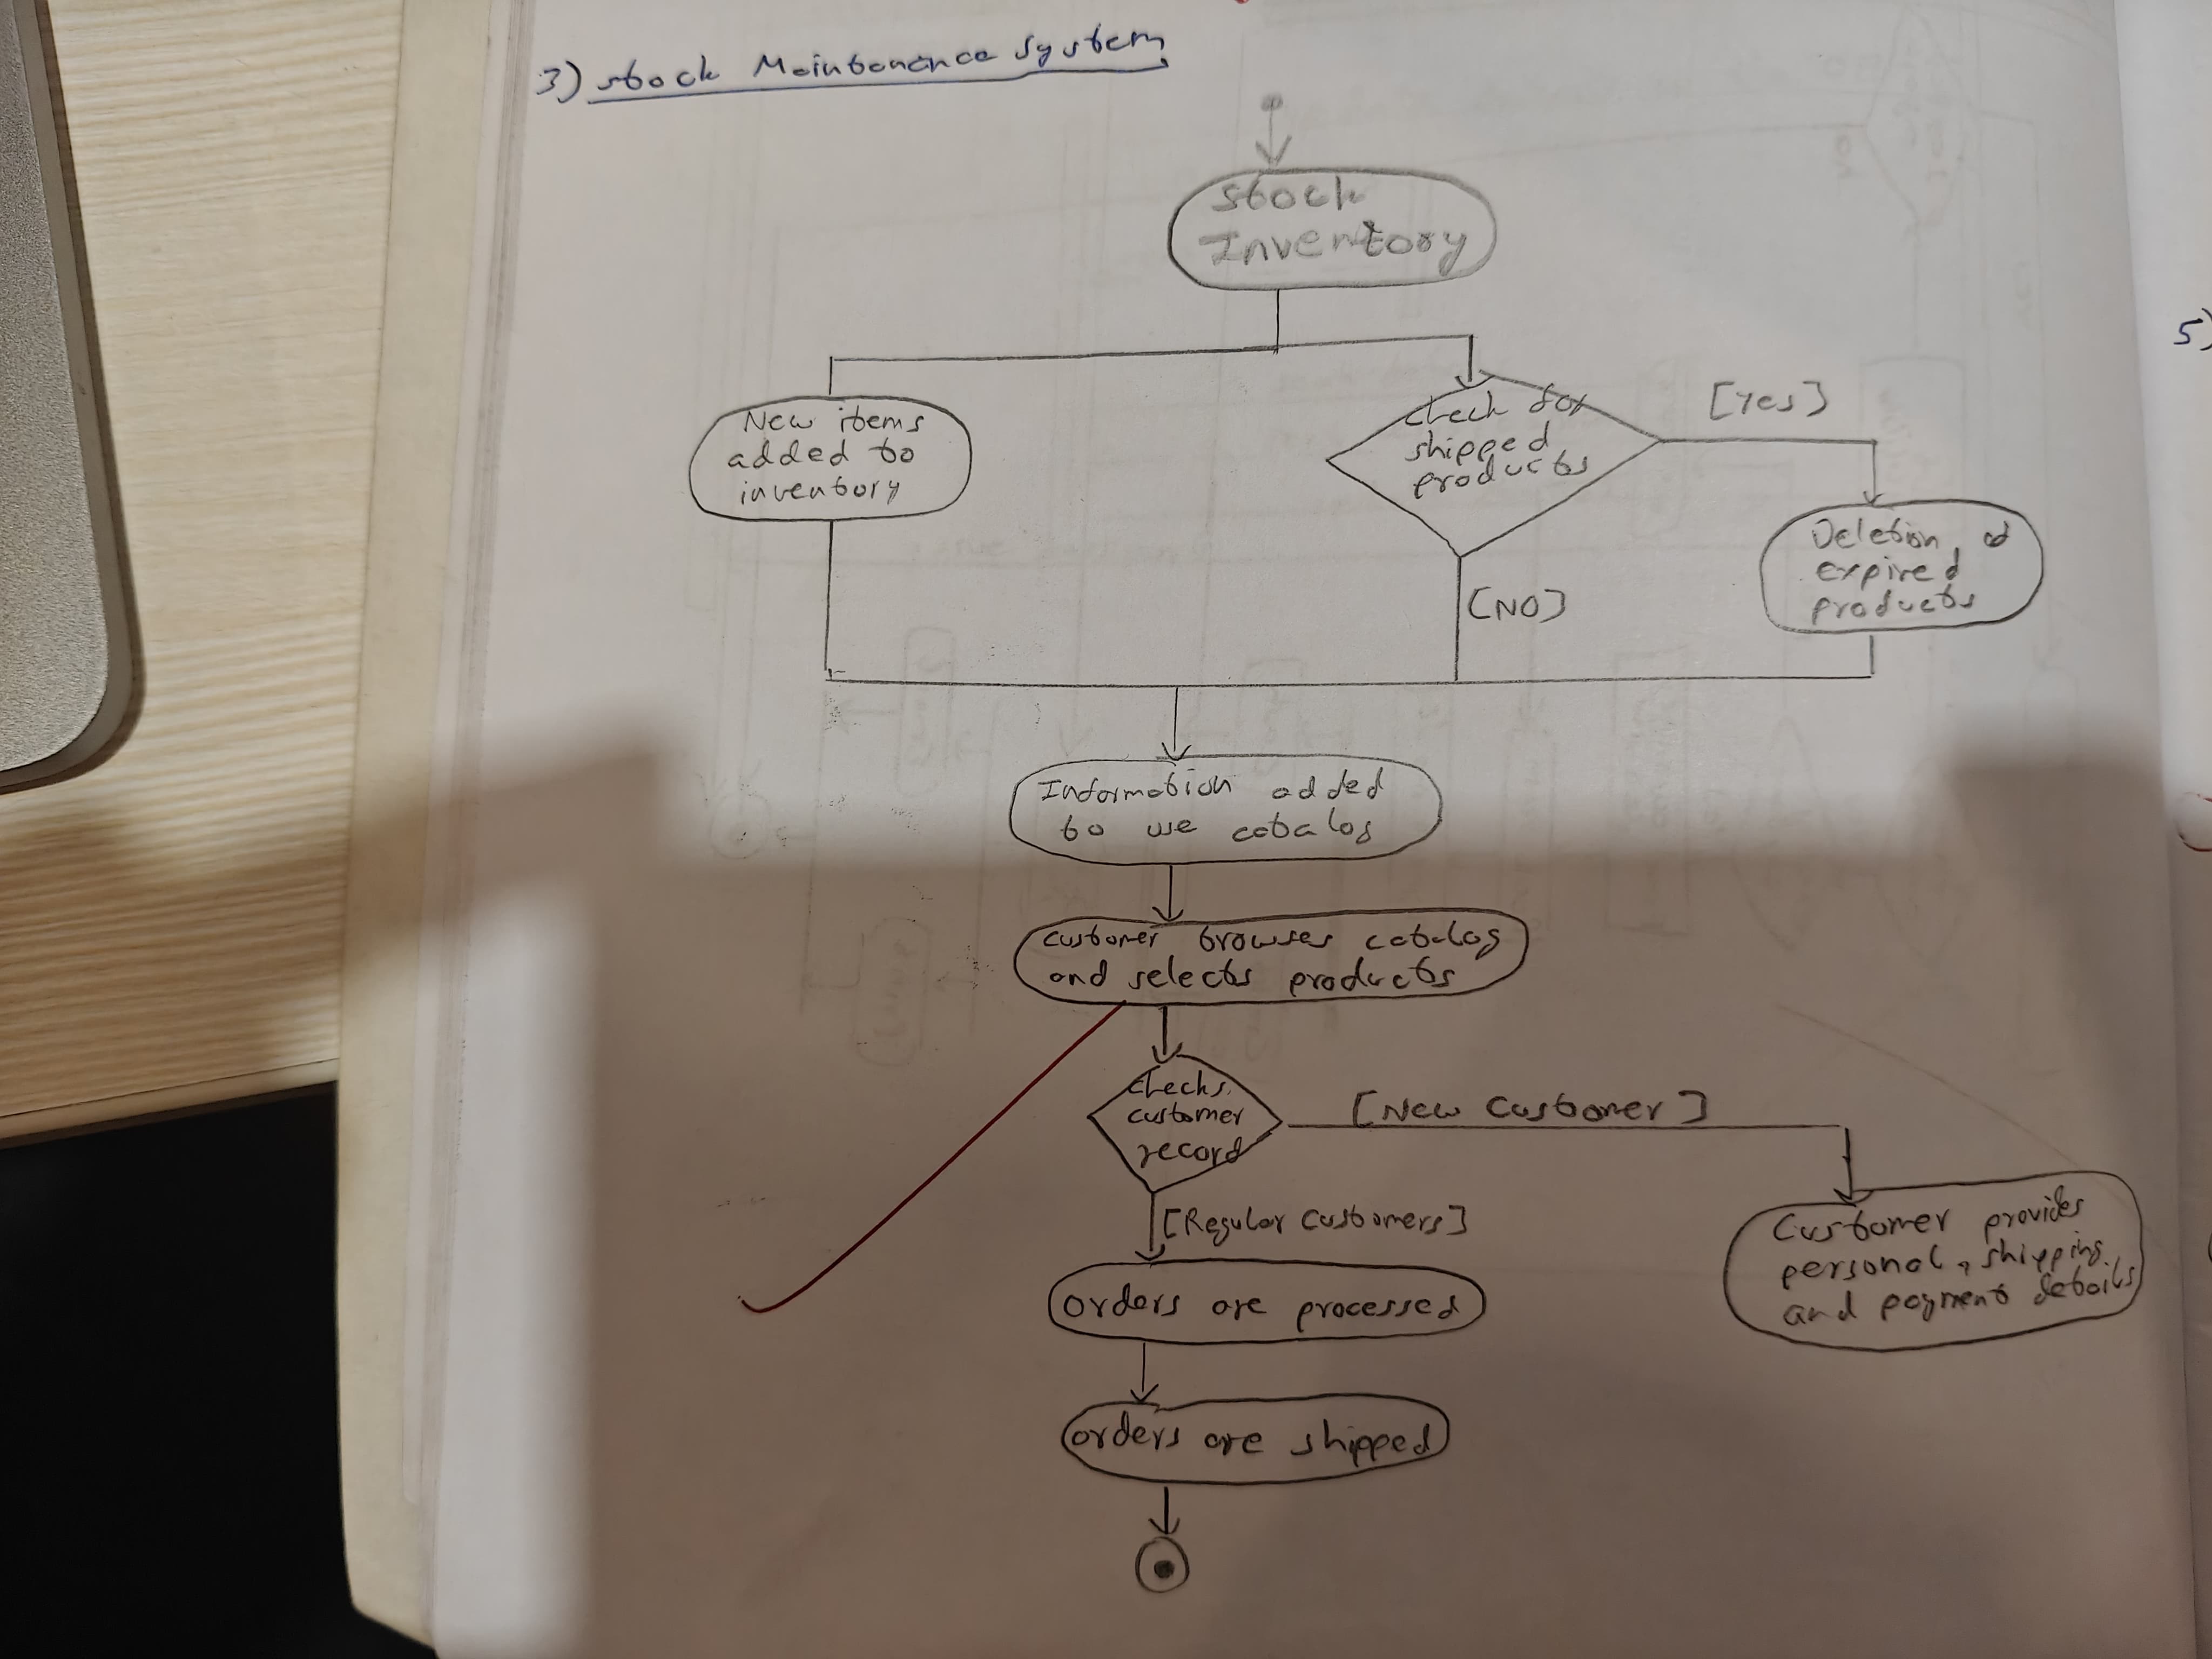 3) Stock Maintenance System
Stock
Inventory
New items
added to
inventory
Check for
shipped
products
[Yes]
[NO]
Deletion of
expired
products
Information added
to use catalog
customer browses catalog
and selects products
checks
customer
record
[New Customer]
[Regular Customers]
Customer provides
personal, shipping
and payment details
orders are processed
orders are shipped
5)